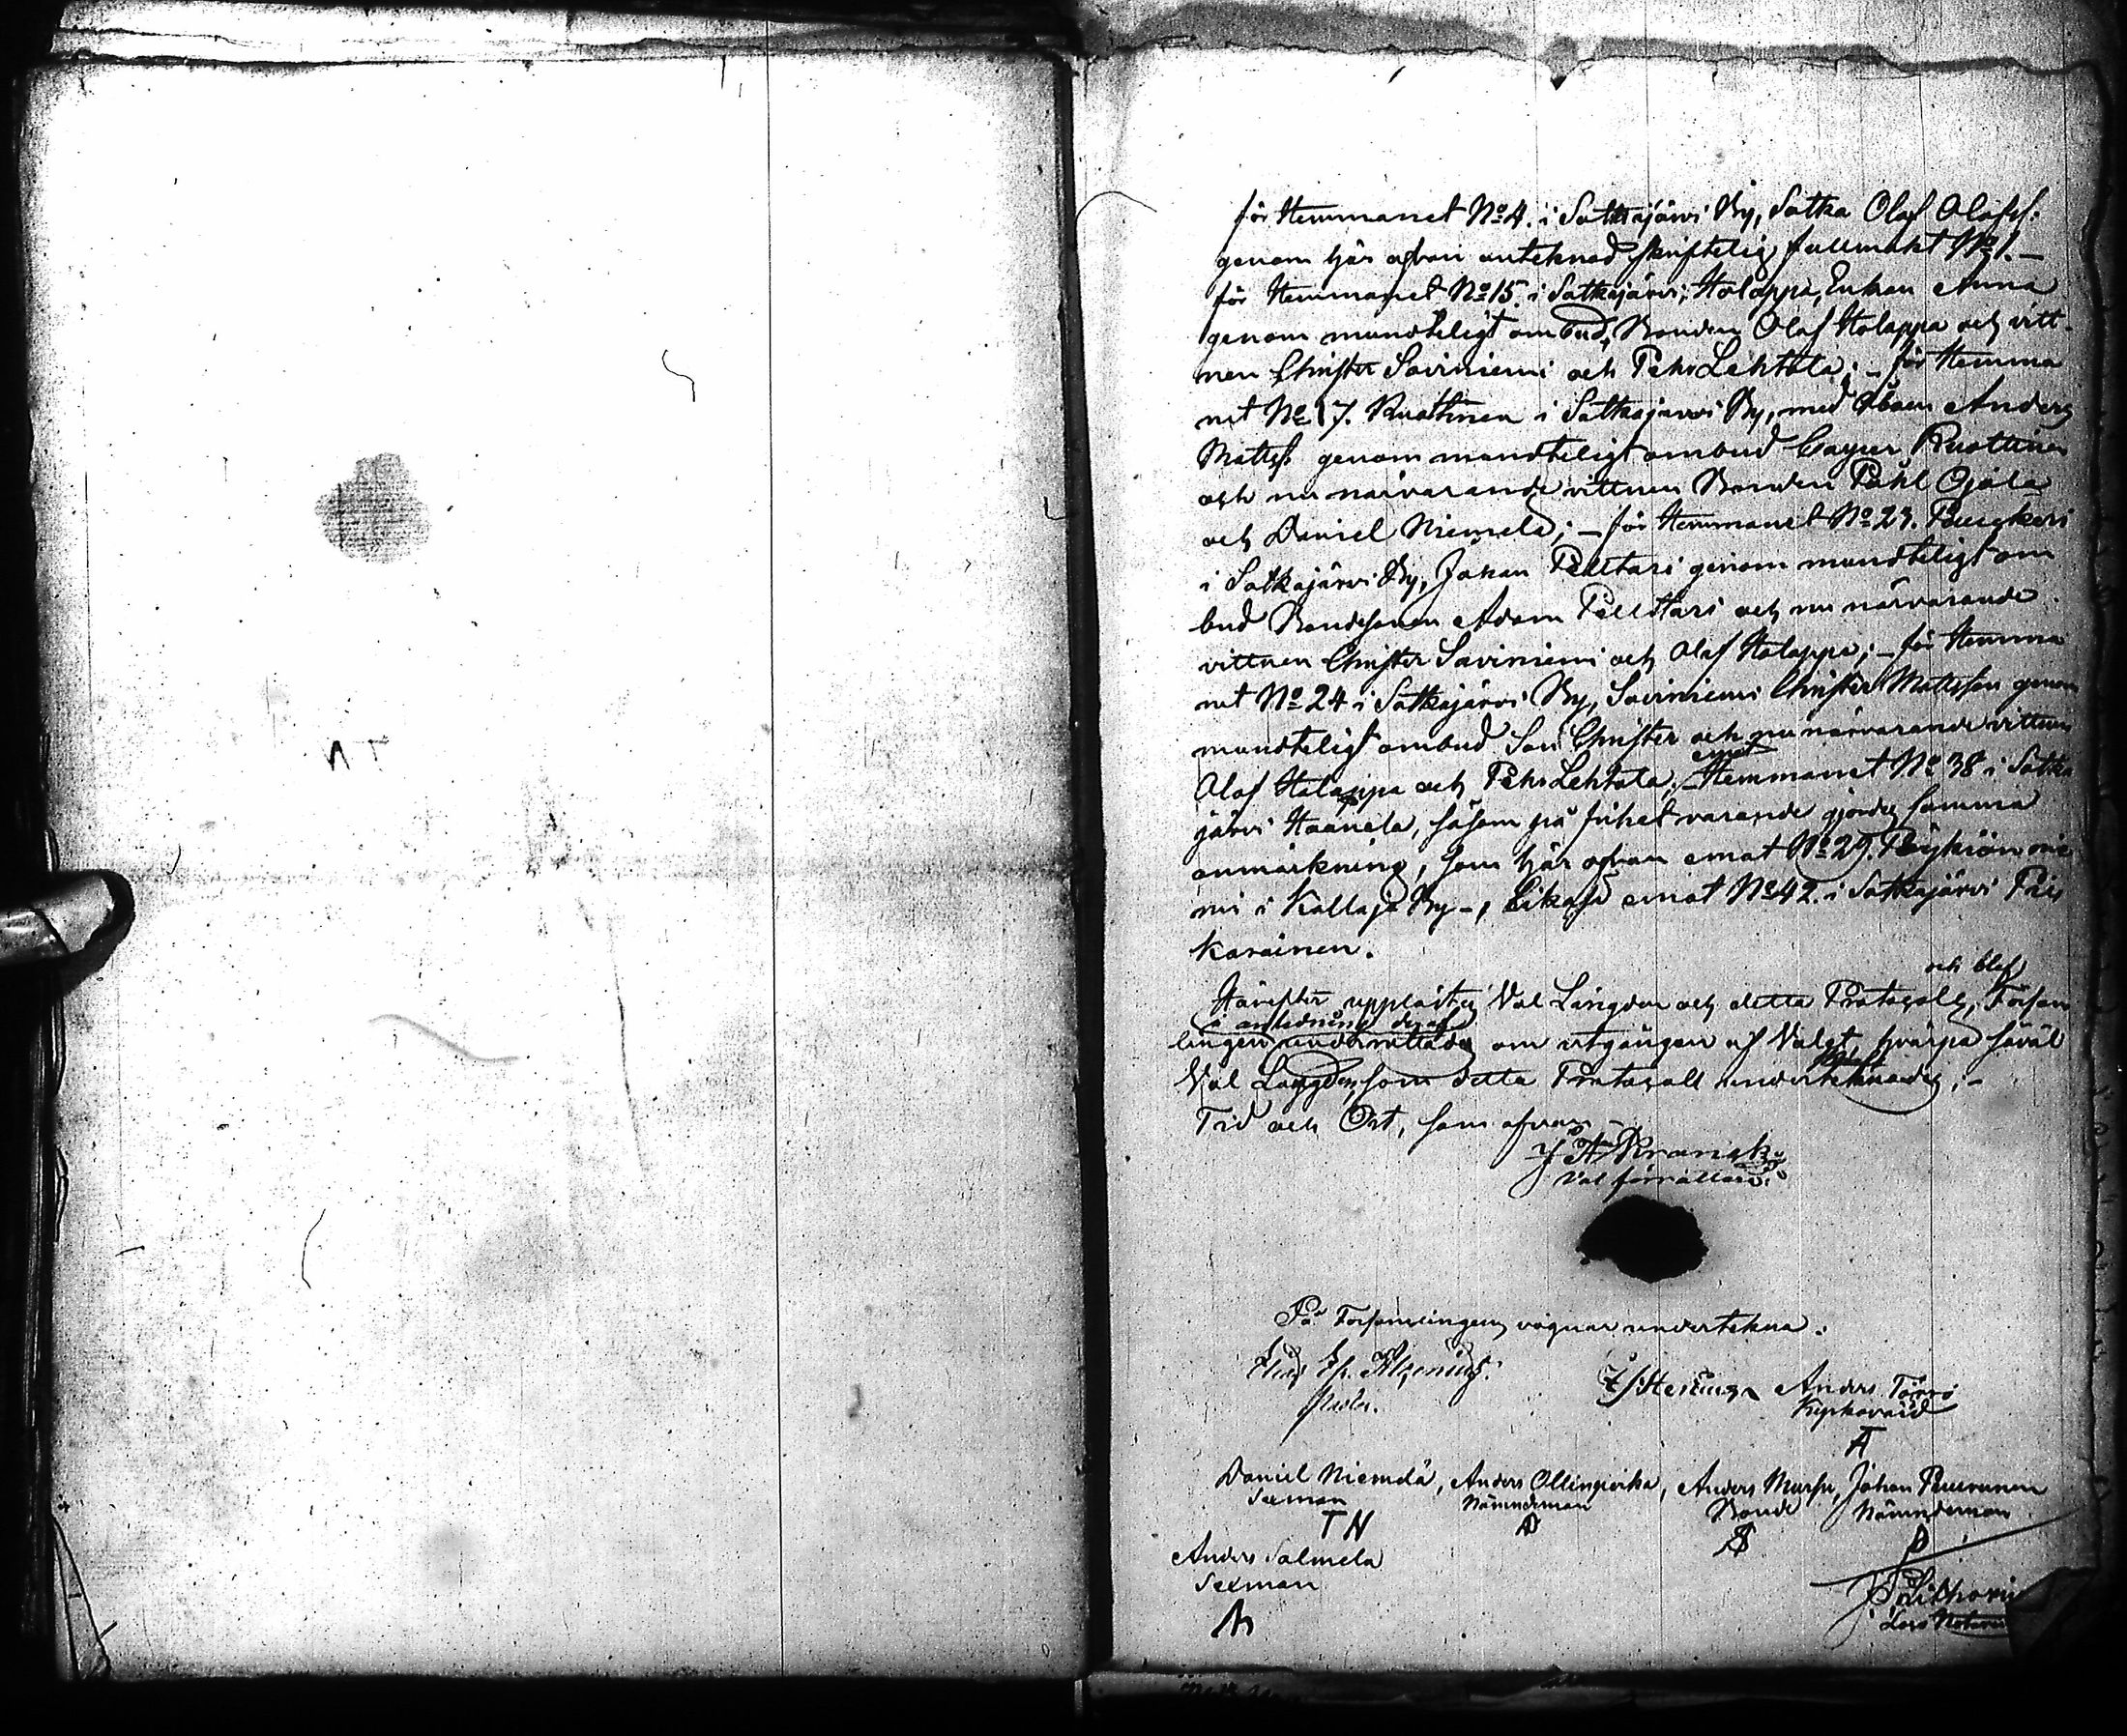 för Hemmanet No 4. i Sotkajärvi By, Sotka Olof Olofss:
genom här ofvan anteknad skriftelig fullmakt No 1. –
för Hemmanet No 15. i Sotkajärvi, Holappa, Enkan Anna
genom mundteligt ombud, Bonden Olof Holappa och vitt-
nen Christer Saviniemi och Pehr Lehtola; – för Hemma
net No 17. Ruottinen i Sotkajärvi By, med Åboen Anders
Mattss: genom mundteligt ombud Casper Ruottinen
och nu närvarande vittnen Bonden Påhl Ojala
och Daniel Niemelä; – för Hemmanet No 23.
i Sotkajärvi By, Johan Pelttari genom mundteligt om
bud Bondesonen Adam Pelttari och nu närvarande
vittnen Christer Saviniemi och Olof Holappa; – för Hemma
net No 24 i Sotkajärvi By, Saviniemi Christer Mattsson genom
mundteligt ombud Son Christer och nu närvarande vittnen
Olof Holappa och Pehr Lehtola; – Hemmanet No 38 i Sotka
järvi Haanela, såsom på frihet varande gjordes samma
anmärkning, som här ofvan emot No 29.
mi i Kallaja By –, likaså emot No 42. i Sotkajärvi Pais
karainen.
och blef
Härefter upplästes Val Längden och detta Protocoll, Försam
i anledning deraf
lingen underrättades om utgången af Valet, hvarpå såväl
Val Längden, som detta Protocoll underteknades. –
Tid och Ort, som ofvan
Val förrättare.
På Församlingens vägnar underteckna.
Anders
Kyrkovärd
Daniel Niemelä, Anders Ollinpirka, Anders Mursu, Johan
Sexman Nämndeman Bonde Nämndeman
T N
Anders Salmela
Sexman